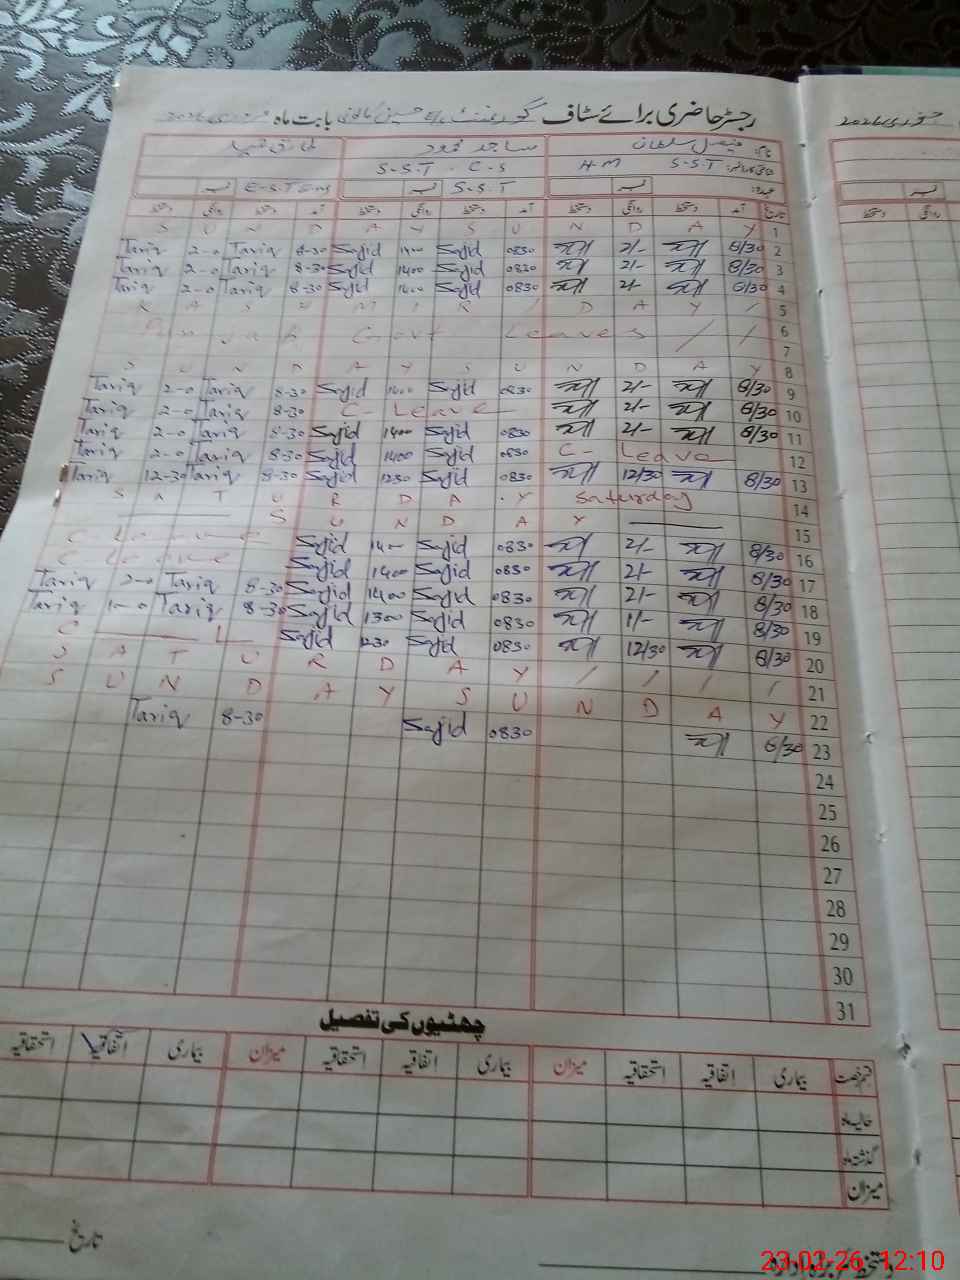 رجسٹر حاضری برائے سٹاف گورنمنٹ بابت ماہ فروری 2026
جنوری 2026
نام: فیصل سلطان ساجد محمود طارق
عہدہ S-S-T H-M S-S-T C-S
نمبر S-S-T نمبر E-S-T نمبر
تاریخ آمد دستخط روانگی دستخط آمد دستخط روانگی دستخط آمد دستخط روانگی دستخط
S U N D A Y S U N D A Y 1
Tariq 2-0 Tariq 8-30 Sajid 1400 Sajid 0830 2/- 8/30 2
Tariq 2-0 Tariq 8-30 Sajid 1400 Sajid 0830 2/- 8/30 3
Tariq 2-0 Tariq 8-30 Sajid 1400 Sajid 0830 2/- 8/30 4
K A S H M I R / D A Y / 5
Punjab Govt Leaves / / 6
7
S U N D A Y S U N D A Y 8
Tariq 2-0 Tariq 8-30 Sajid 1400 Sajid 0830 2/- 8/30 9
Tariq 2-0 Tariq 8-30 C- Leave 2/- 8/30 10
Tariq 2-0 Tariq 8-30 Sajid 1400 Sajid 0830 2/- 8/30 11
Tariq 2-0 Tariq 8-30 Sajid 1400 Sajid 0830 C- Leave 12
Tariq 12-30 Tariq 8-30 Sajid 1230 Sajid 0830 12/30 8/30 13
S A T U R D A Y Saturday 14
S U N D A Y 15
C Leave Sajid 14 Sajid 0830 2/- 8/30 16
C Leave Sajid 1400 Sajid 0830 2/- 8/30 17
Tariq 2-0 Tariq 8-30 Sajid 1400 Sajid 0830 2/- 8/30 18
Tariq 1-0 Tariq 8-30 Sajid 1300 Sajid 0830 1/- 8/30 19
C L Sajid 1230 Sajid 0830 12/30 8/30 20
S A T U R D A Y / / / / 21
S U N D A Y S U N D A Y 22
Tariq 8-30 Sajid 0830 8/30 23
24
25
26
27
28
29
30
31
چھٹیوں کی تفصیل
قسم رخصت بیماری اتفاقیہ استحقاقیہ میزان بیماری اتفاقیہ استحقاقیہ میزان بیماری اتفاقیہ استحقاقیہ
حالیہ ماہ
گذشتہ ماہ
میزان
تاریخ
23-02-26 12:10